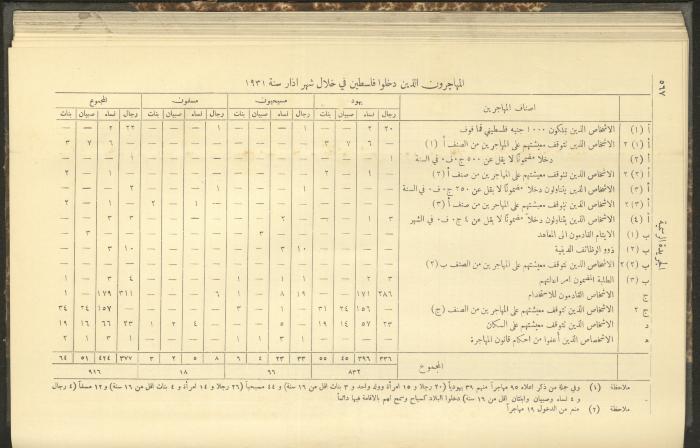 ٥٦٧
الجريدة الرسمية
المهاجرون الذين دخلوا فلسطين في خلال شهر اذار سنة ١٩٣١
اصناف المهاجرين | يهود | مسيحيون | مسلمون | المجموع
رجال نساء صبيان بنات | رجال نساء صبيان بنات | رجال نساء صبيان بنات | رجال نساء صبيان بنات
أ (١) الاشخاص الذين يملكون ١٠٠٠ جنيه فلسطيني فما فوق | ٢٠ ٢ — — | ١ — — — | ١ — — — | ٢٢ ٢ — —
أ (١) ٢ الاشخاص الذين تتوقف معيشتهم على المهاجرين من الصنف أ (١) | — ٦ ٧ ٣ | — — — — | — — — — | — ٦ ٧ ٣
أ (٢)
أ (٢) ٢ الاشخاص الذين تتوقف معيشتهم على المهاجرين من صنف أ (٢)
أ (٣) الاشخاص الذين يتناولون دخلا مضمونًا لا يقل عن ٢٥٠ ج٠ف٠ في السنة
أ (٣) ٢ الاشخاص الذين تتوقف معيشتهم على المهاجرين من صنف أ (٣)
أ (٤) الاشخاص الذين يتناولون دخلا مضمونًا لا يقل عن ٤ ج٠ف٠ في الشهر
ب (١) الايتام القادمون الى المعاهد
ب (٢) ذوو الوظائف الدينية
ب (٢) ٢ الاشخاص الذين تتوقف معيشتهم على المهاجرين من الصنف ب (٢)
ب (٣) الطلبة المضمون امر اعالتهم
ج الاشخاص القادمون للاستخدام | ٢٨٦ ١٧١ — — | ١٩ ٨ ١ — | ٦ — — — | ٣١١ ١٧٩ ١ —
ج ٢ الاشخاص الذين تتوقف معيشتهم على المهاجرين من الصنف (ج) | — ١٥٦ ٢٤ ٣١ | — ١ — ٣ | — — — — | — ١٥٧ ٢٤ ٣٤
د الاشخاص الذين تتوقف معيشتهم على السكان | ٢٣ ٥٧ ١٤ ١٩ | — ٥ — — | — ٤ ٢ ١ | ٢٣ ٦٦ ١٦ ١٩
ه الاشخاص الذين أعفوا من احكام قانون المهاجرة
المجموع | ٣٣٦ ٣٩٦ ٤٥ ٥٥ | ٣٣ ٢٣ ٤ ٦ | ٨ ٥ ٢ ٣ | ٣٧٧ ٤٢٤ ٥١ ٦٤
٨٣٢ | ٦٦ | ١٨ | ٩١٦
ملاحظة (١) وفي جملة من ذكر اعلاه ٩٥ مهاجراً منهم ٣٩ يهودياً (٢٠ رجلا و ١٥ امرأة وولد واحد و ٣ بنات اقل من ١٦ سنة) و ٤٤ مسيحياً (٢٦ رجلا و ١٤ امرأة و ٤ بنات اقل من ١٦ سنة) و ١٢ مسلماً (٤ رجال
و ٤ نساء وصبيان وابنتان اقل من ١٦ سنة) دخلوا البلاد كسياح وسمح لهم بالاقامة فيها دائماً
ملاحظة (٢) منع من الدخول ١٩ مهاجراً